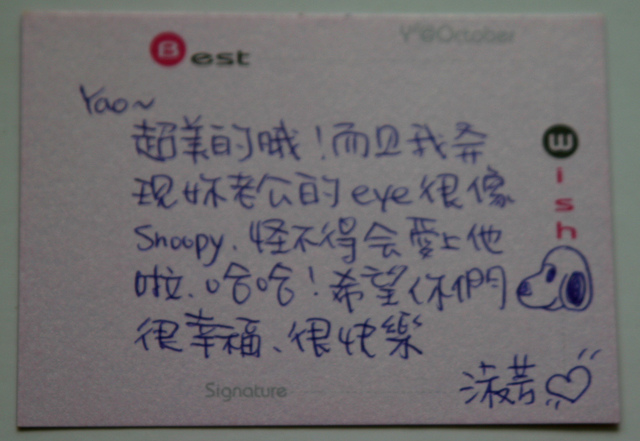 Best
Y'@October
Wish
Yao~
超美的哦!而且我發
現妳老公的eye很像
Snoopy.怪不得會愛上他
啦.哈哈!希望你們
很幸福、很快樂
淑芳
Signature